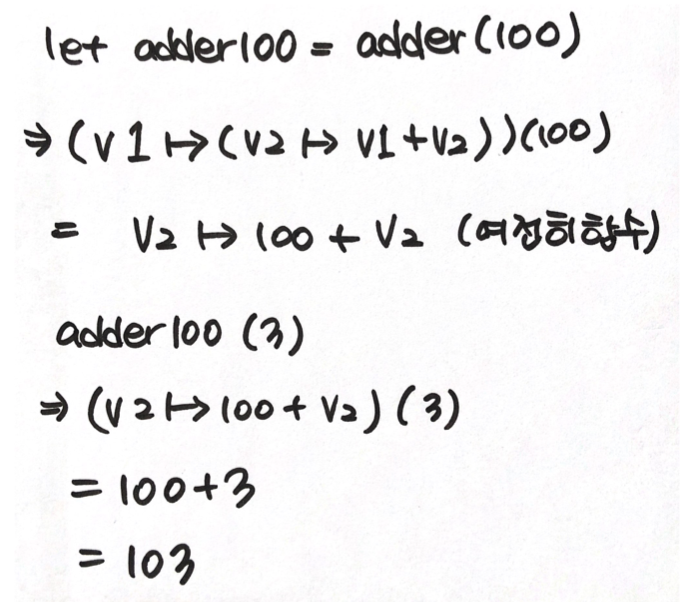 let adder100 = adder(100)
⇒ (v1 ↦ (v2 ↦ v1+v2))(100)
= v2 ↦ 100 + v2 (여전히함수)
adder100 (3)
⇒ (v2 ↦ 100 + v2) (3)
= 100+3
= 103